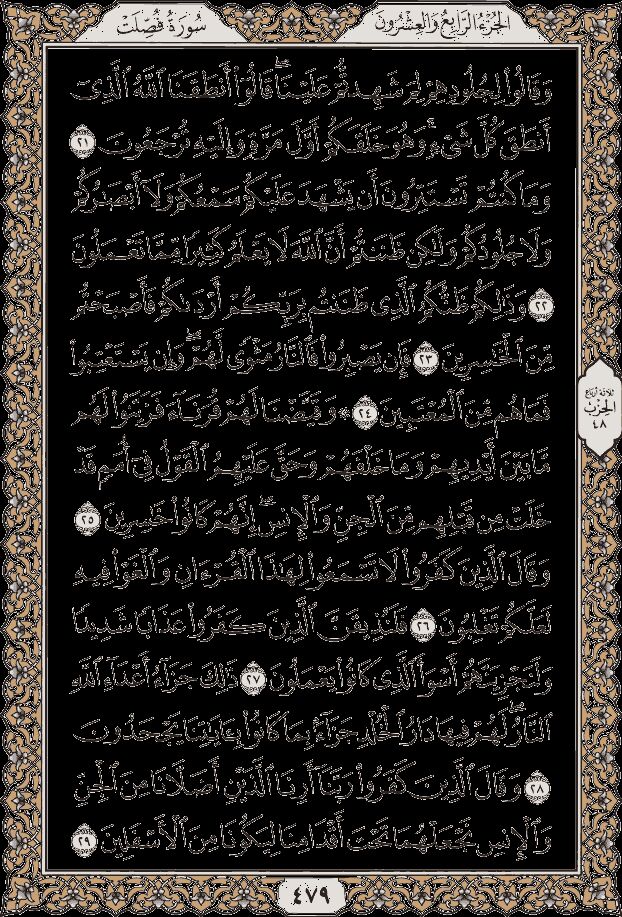 الجُزْءُ الرَّابِعُ وَالعِشْرُونَ
سُورَةُ فُصِّلَتْ
وَقَالُوا۟ لِجُلُودِهِمْ لِمَ شَهِدتُّمْ عَلَيْنَا ۖ قَالُوٓا۟ أَنطَقَنَا ٱللَّهُ ٱلَّذِىٓ
أَنطَقَ كُلَّ شَىْءٍ ۚ وَهُوَ خَلَقَكُمْ أَوَّلَ مَرَّةٍ وَإِلَيْهِ تُرْجَعُونَ ٢١
وَمَا كُنتُمْ تَسْتَتِرُونَ أَن يَشْهَدَ عَلَيْكُمْ سَمْعُكُمْ وَلَآ أَبْصَٰرُكُمْ
وَلَا جُلُودُكُمْ وَلَٰكِن ظَنَنتُمْ أَنَّ ٱللَّهَ لَا يَعْلَمُ كَثِيرًا مِّمَّا تَعْمَلُونَ
٢٢ وَذَٰلِكُمْ ظَنُّكُمُ ٱلَّذِى ظَنَنتُم بِرَبِّكُمْ أَرْدَىٰكُمْ فَأَصْبَحْتُم
مِّنَ ٱلْخَٰسِرِينَ ٢٣ فَإِن يَصْبِرُوا۟ فَٱلنَّارُ مَثْوًى لَّهُمْ ۖ وَإِن يَسْتَعْتِبُوا۟
فَمَا هُم مِّنَ ٱلْمُعْتَبِينَ ٢٤ ۞ وَقَيَّضْنَا لَهُمْ قُرَنَآءَ فَزَيَّنُوا۟ لَهُم
مَّا بَيْنَ أَيْدِيهِمْ وَمَا خَلْفَهُمْ وَحَقَّ عَلَيْهِمُ ٱلْقَوْلُ فِىٓ أُمَمٍ قَدْ
خَلَتْ مِن قَبْلِهِم مِّنَ ٱلْجِنِّ وَٱلْإِنسِ ۖ إِنَّهُمْ كَانُوا۟ خَٰسِرِينَ ٢٥
وَقَالَ ٱلَّذِينَ كَفَرُوا۟ لَا تَسْمَعُوا۟ لِهَٰذَا ٱلْقُرْءَانِ وَٱلْغَوْا۟ فِيهِ
لَعَلَّكُمْ تَغْلِبُونَ ٢٦ فَلَنُذِيقَنَّ ٱلَّذِينَ كَفَرُوا۟ عَذَابًا شَدِيدًا
وَلَنَجْزِيَنَّهُمْ أَسْوَأَ ٱلَّذِى كَانُوا۟ يَعْمَلُونَ ٢٧ ذَٰلِكَ جَزَآءُ أَعْدَآءِ ٱللَّهِ
ٱلنَّارُ ۖ لَهُمْ فِيهَا دَارُ ٱلْخُلْدِ ۖ جَزَآءًۢ بِمَا كَانُوا۟ بِـَٔايَٰتِنَا يَجْحَدُونَ
٢٨ وَقَالَ ٱلَّذِينَ كَفَرُوا۟ رَبَّنَآ أَرِنَا ٱلَّذَيْنِ أَضَلَّانَا مِنَ ٱلْجِنِّ
وَٱلْإِنسِ نَجْعَلْهُمَا تَحْتَ أَقْدَامِنَا لِيَكُونَا مِنَ ٱلْأَسْفَلِينَ ٢٩
ثلاثة أرباع
الحِزْب
٤٨
٤٧٩